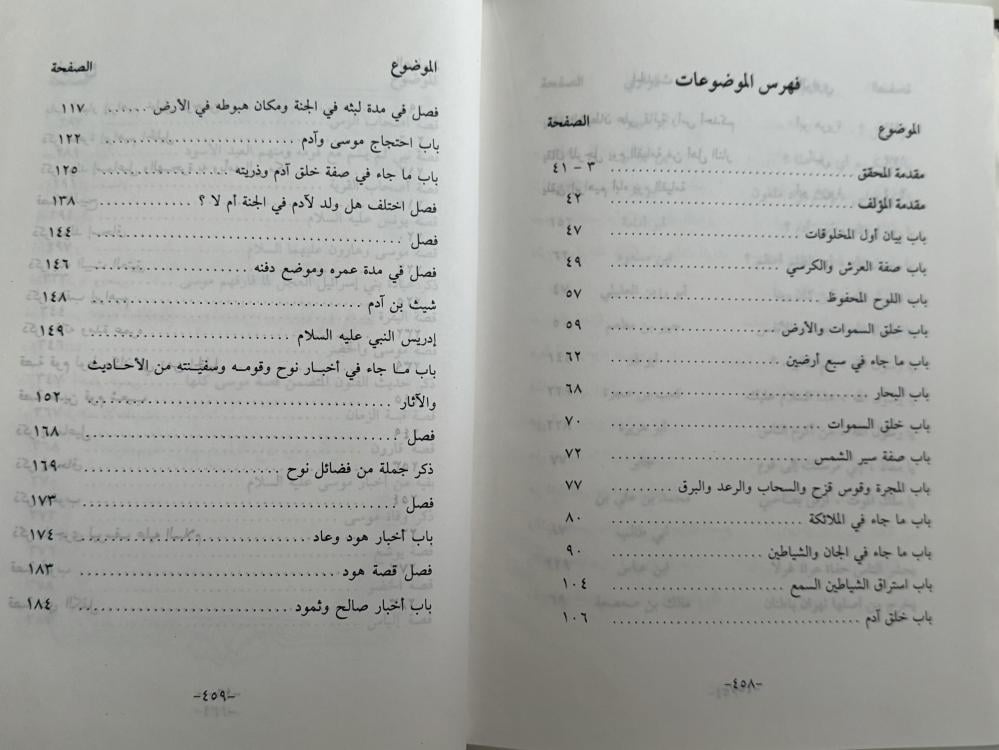 فهرس الموضوعات
الموضوع الصفحة
مقدمة المحقق ٣ - ٤١
مقدمة المؤلف ٤٢
باب بيان أول المخلوقات ٤٧
باب صفة العرش والكرسي ٤٩
باب اللوح المحفوظ ٥٧
باب خلق السموات والأرض ٥٩
باب ما جاء في سبع أرضين ٦٢
باب البحار ٦٨
باب خلق السموات ٧٠
باب صفة سير الشمس ٧٢
باب المجرة وقوس قزح والسحاب والرعد والبرق ٧٧
باب ما جاء في الملائكة ٨٠
باب ما جاء في الجان والشياطين ٩٠
باب استراق الشياطين السمع ١٠٤
باب خلق آدم ١٠٦
-٤٥٨-
الموضوع الصفحة
فصل في مدة لبثه في الجنة ومكان هبوطه في الأرض ١١٧
باب احتجاج موسى وآدم ١٢٢
باب ما جاء في صفة خلق آدم وذريته ١٢٥
فصل اختلف هل ولد لآدم في الجنة أم لا ؟ ١٣٨
فصل ١٤٤
فصل في مدة عمره وموضع دفنه ١٤٦
شيث بن آدم ١٤٨
إدريس النبي عليه السلام ١٤٩
باب ما جاء في أخبار نوح وقومه وسفينته من الأحاديث
والآثار ١٥٢
فصل ١٦٨
ذكر جملة من فضائل نوح ١٦٩
فصل ١٧٣
باب أخبار هود وعاد ١٧٤
فصل قصة هود ١٨٣
باب أخبار صالح وثمود ١٨٤
-٤٥٩-